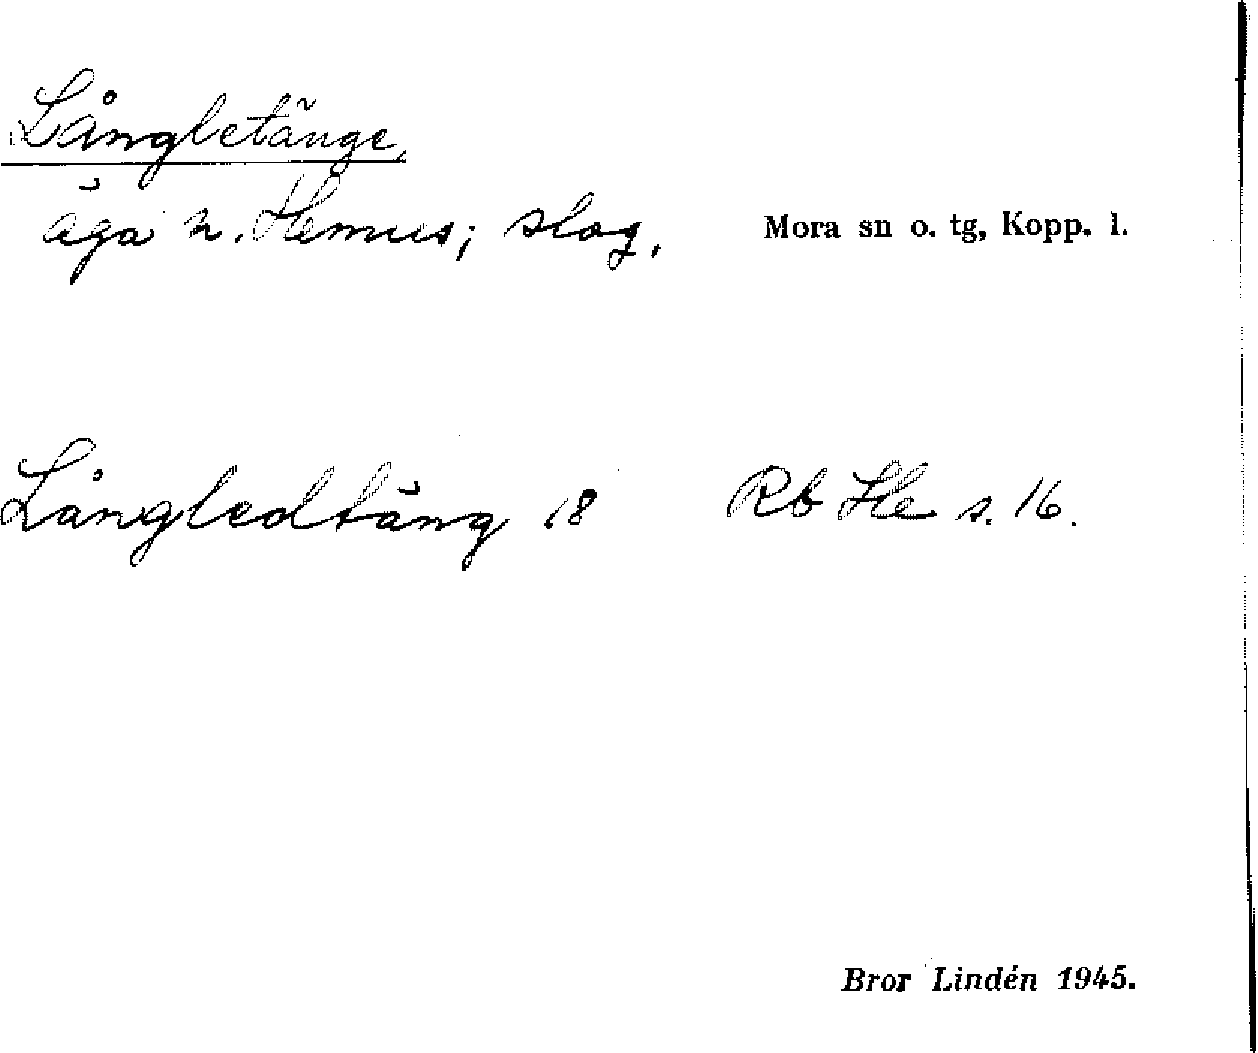 Långletänge,
äga n. Hemus; slog. Mora sn o. tg, Kopp. l.
Långledtäng 18 Rb He s. 16.
Bror Lindén 1945.